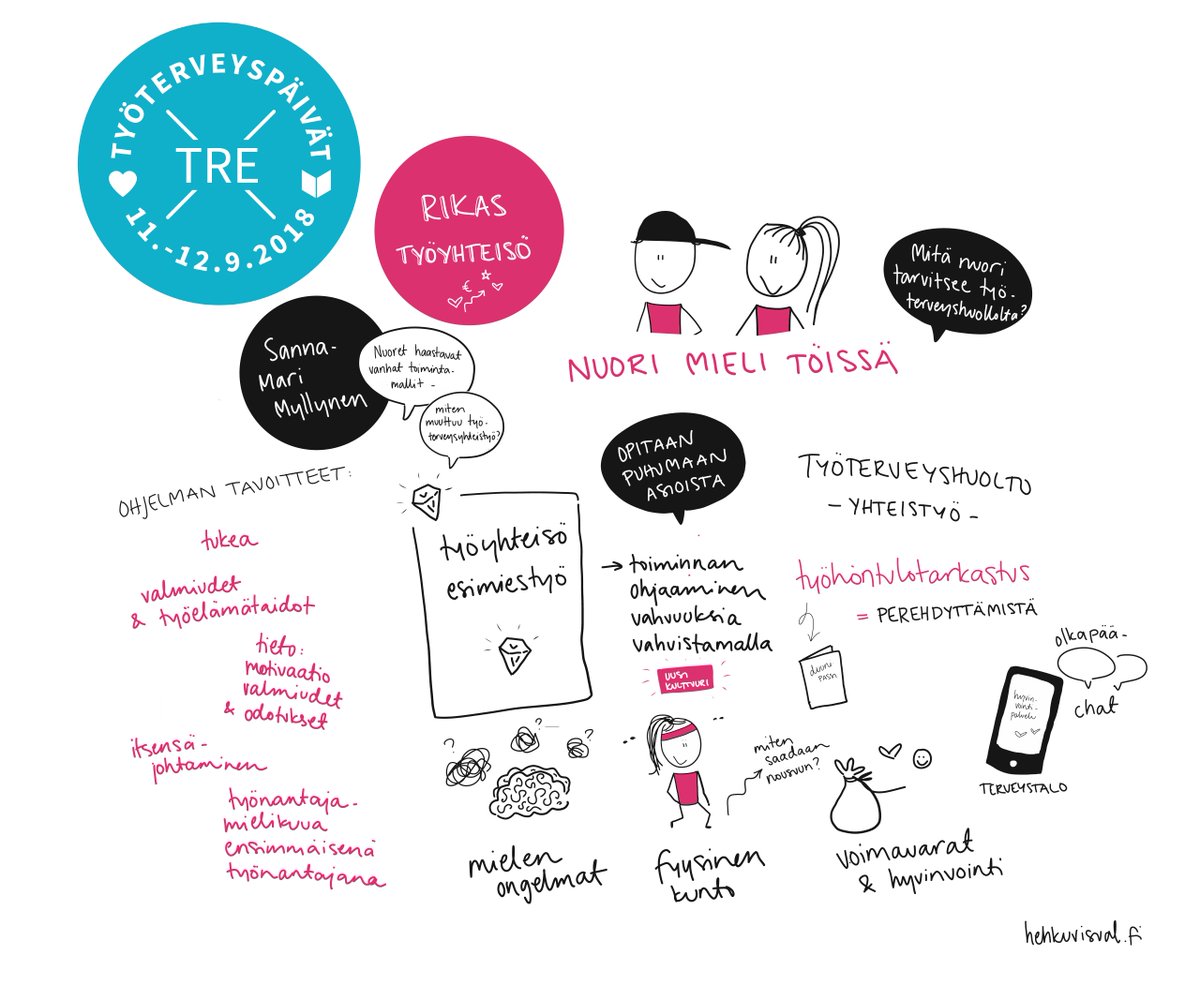 TYÖTERVEYSPÄIVÄT
TRE
11.-12.9.2018
RIKAS
TYÖYHTEISÖ
€
Mitä nuori
tarvitsee työ-
terveyshuollolta?
NUORI MIELI TÖISSÄ
Sanna-
Mari
Myllynen
Nuoret haastavat
vanhat toiminta-
mallit -
miten
muuttuu työ-
terveysyhteistyö?
OHJELMAN TAVOITTEET:
tukea
valmiudet
& työelämätaidot
tieto:
motivaatio
valmiudet
& odotukset
itsensä-
johtaminen
työnantaja-
mielikuva
ensimmäisenä
työnantajana
työyhteisö
esimiestyö
OPITAAN
PUHUMAAN
ASIOISTA
→ toiminnan
ohjaaminen
vahvuuksia
vahvistamalla
UUSI
KULTTUURI
TYÖTERVEYSHUOLTO
- YHTEISTYÖ -
työhöntulotarkastus
= PEREHDYTTÄMISTÄ
duuni
passi
olkapää-
chat
hyvin-
vointi-
palvelu
TERVEYSTALO
? ? ?
mielen
ongelmat
miten
saadaan
nousuun?
fyysinen
kunto
voimavarat
& hyvinvointi
hehkuvisual.fi